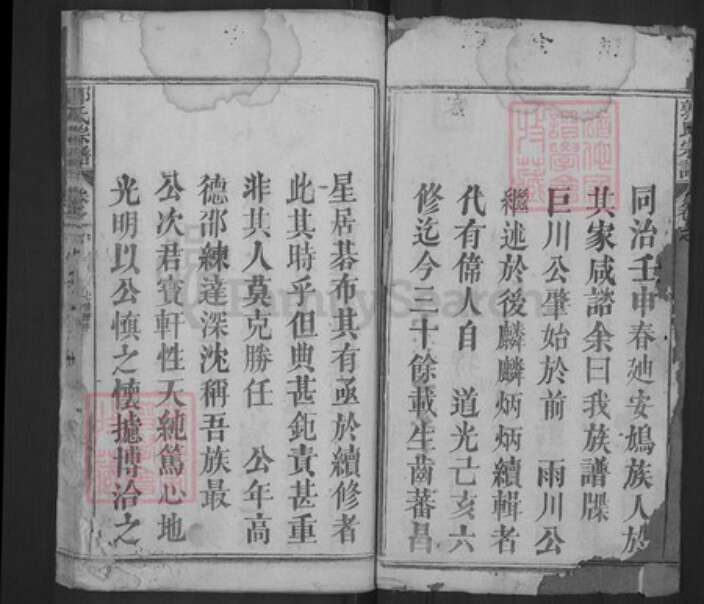 同治壬申春廸安鳩族人於
其家咸諮余曰我族譜牒
巨川公肇始於前　雨川公
繼述於後麟麟炳炳續輯者
代有偉人自　道光己亥六
修迄今三十餘載生齒蕃昌
星居碁布其有亟於續修者
此其時乎但典甚鉅責甚重
非其人莫克勝任　公年高
德邵練達深沈稱吾族最
公次君寶軒性天純篤心地
光明以公慎之懷攄博洽之
郭氏宗譜
FamilySearch